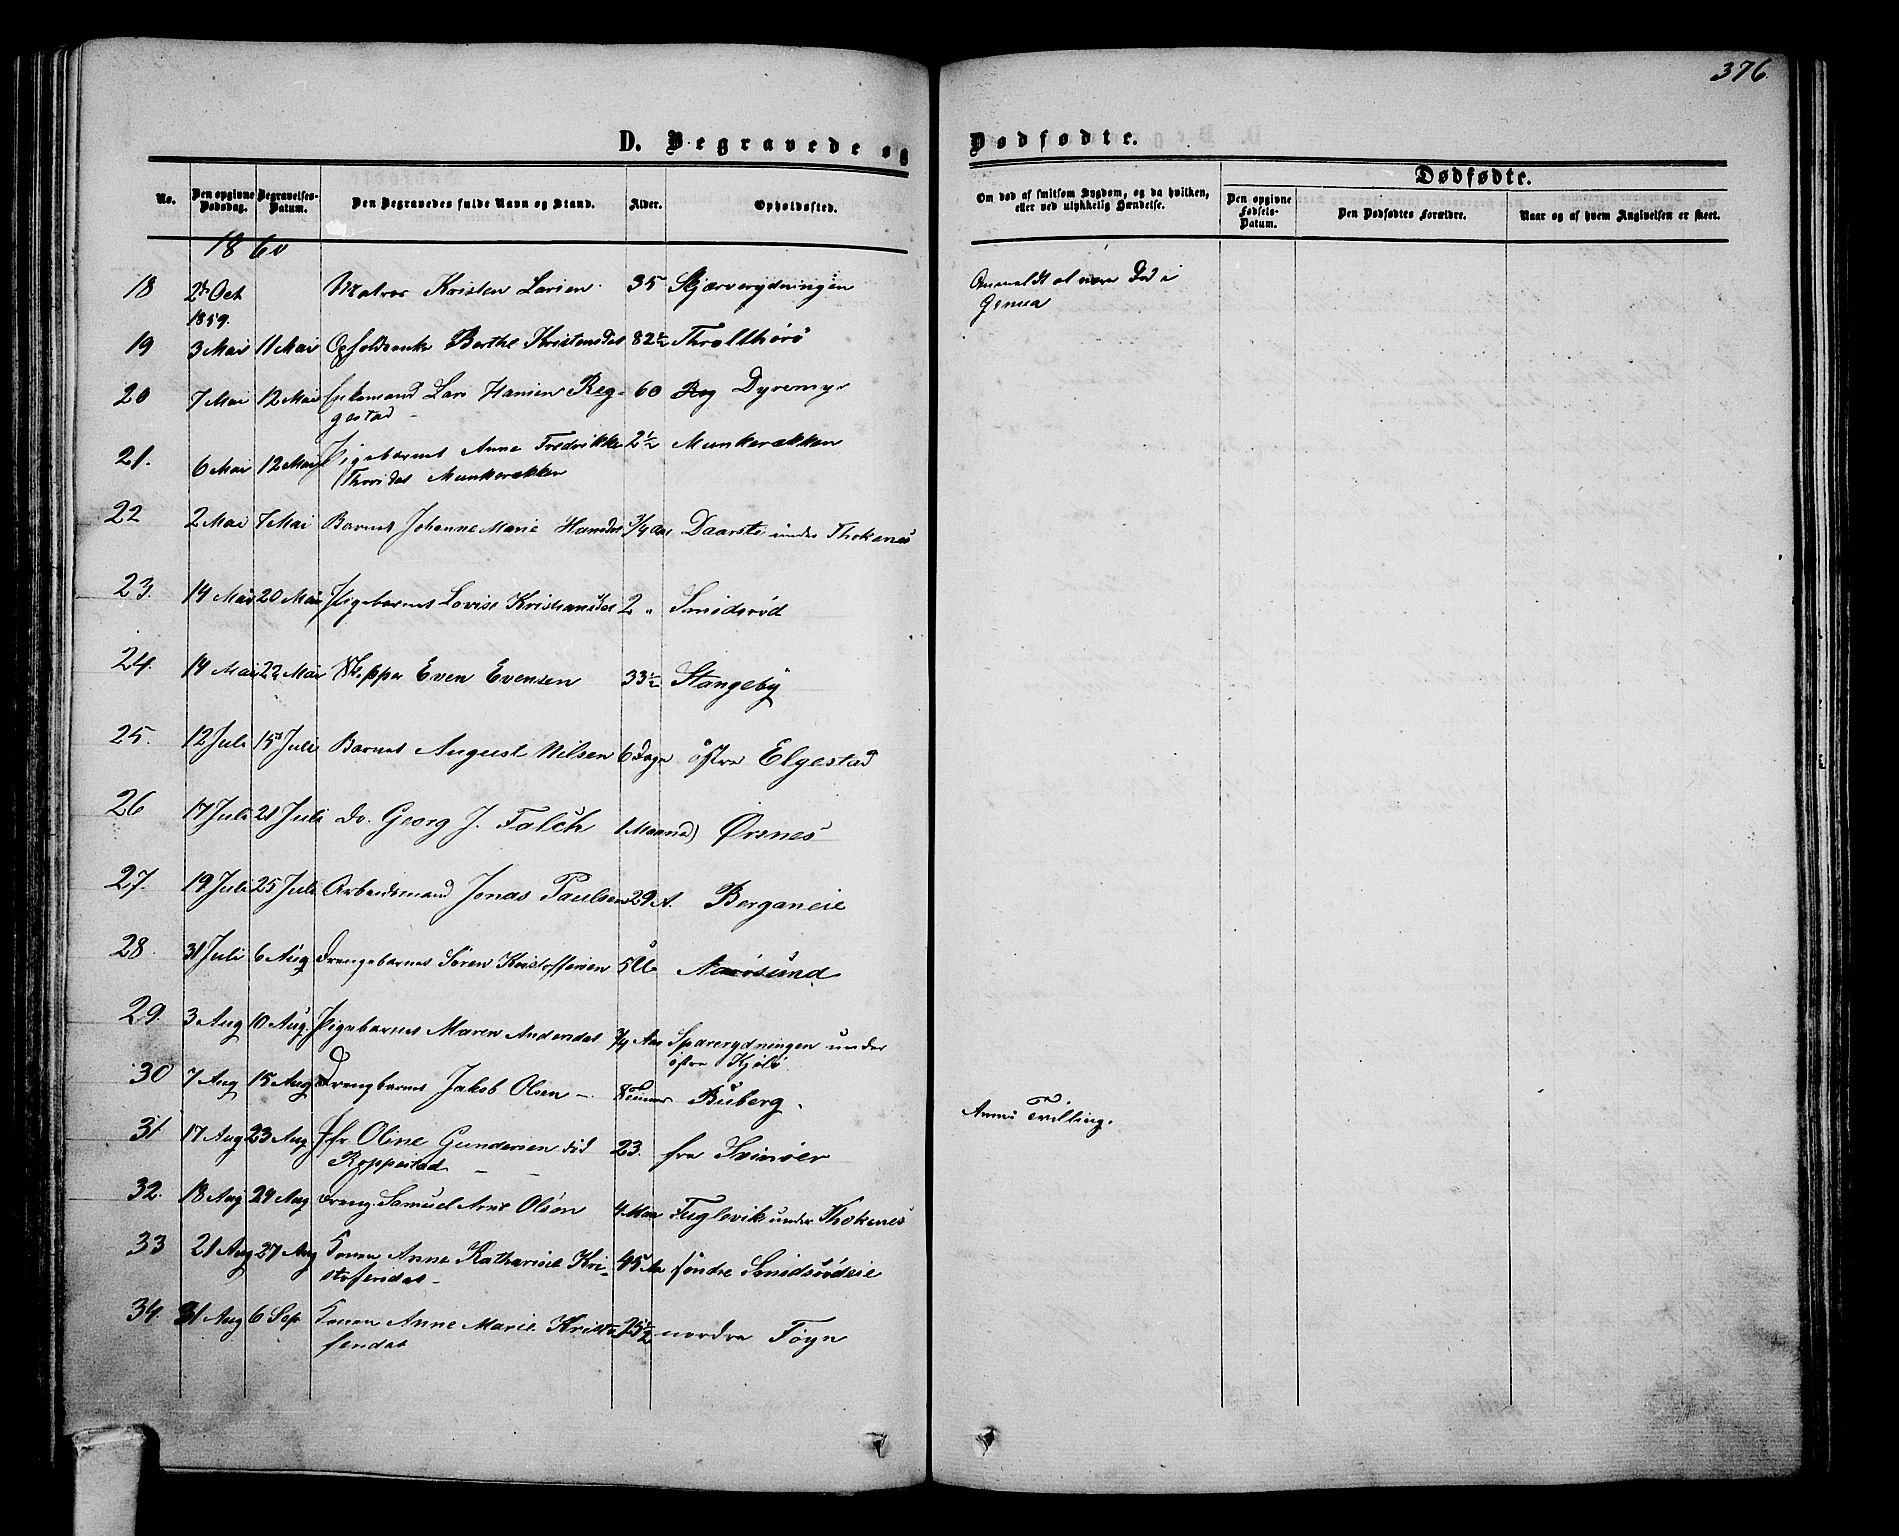 376
D. Begravede og Dødfødte.
No. Den opgivne Dødsdag. Begravelses-Datum. Den Begravedes fulde Navn og Stand. Alder. Opholdssted. Om død af smitsom Sygdom, og da hvilken, eller ved ulykkelig Hændelse. Dødfødte.
Den opgivne Fødsels-Datum. Den Dødfødtes Forældre. Naar og af hvem Angivelsen er skeet.
1860
18 Oct Matros Kristen Larsen 35 Skjærverydningen Anmeldt at være død i
1859. Genua
19 3 Mai 11 Mai Berthe Kristensdat 82½
20 7 Mai 12 Mai Enkemand Lars Hansen Reg- 60 Dyremyr
gestad
21. 6 Mai 12 Mai Pigebarnet Anne Fredrikke 2½ Munkerækken
Thorsdat Munkerækken
22 2 Mai 7 Mai Barnet Johanne Marie Hansdat ¾ Aar under Thokenes
23. 14 Mai 20 Mai Pigebarnet Lovise Kristiansdat 2 " Smidsrød
24. 14 Mai 22 Mai Even Evensen 33½ Stangeby
25. 12 Juli 15 Juli Barnet August Nilsen 6 Dage østre Elgestad
26 17 Juli 21 Juli do. Georg J. Falch 1 Maaned Ørsnes
27. 19 Juli 25 Juli Arbeidsmand Jonas Paulsen 29 A. Berganeie
28. 31 Juli 6 Aug Drengebarnet Søren Kristoffersen 5 U. Narøsund
29. 3 Aug 10 Aug. Pigebarnet Maren Andersdat ¾ Aar Sparerydningen under
østre Kjølø
30 7 Aug 15 Aug Drengbarnet Jakob Olsen – 8 Timer Buberg.
31 17 Aug 23 Aug Oline Gundersen 23. fra Svinøer
Roppestad
32. 18 Aug 24 Aug Dreng. Samuel Olsen 4 Fuglevik under Thokenes
33 21 Aug 27 Aug Konen Anne Katharine Kri- 45 Aar søndre Smidsrødeie
stofersdat –
34. 31 Aug 6 Sep Konen Anne Marie nordre Tøyn
Tvilling.